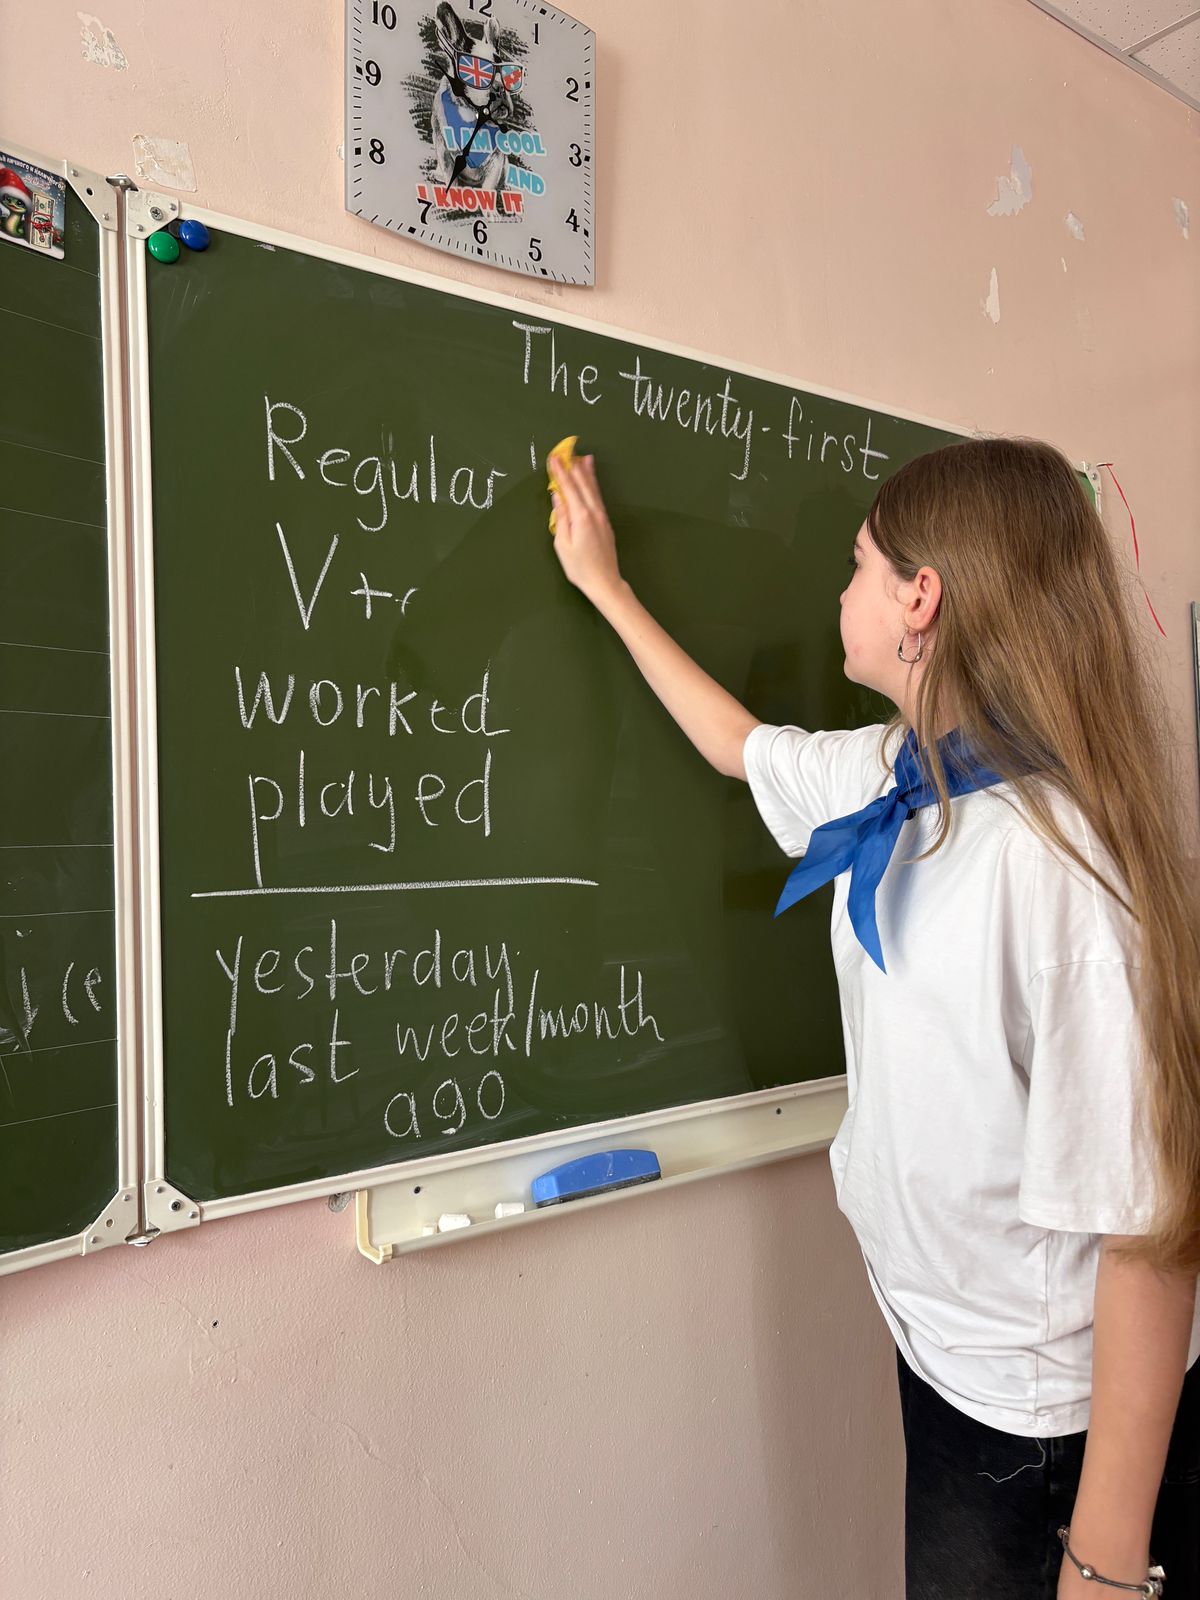 10 12 1
9 2
8 3
7 6 5 4
I AM COOL
AND
I KNOW IT
The twenty-first
Regular
V+
worked
played
yesterday
last week/month
ago